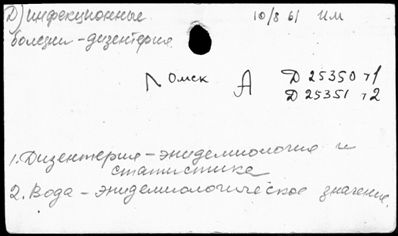 Д) инфекционные 10/8 61 ИМ
болезни - дизентерия
Омск А Д 25350 т1
Д 25351 т2
1. Дизентерия - эпидемиология и
статистика
2. Вода - эпидемиологическое значение.